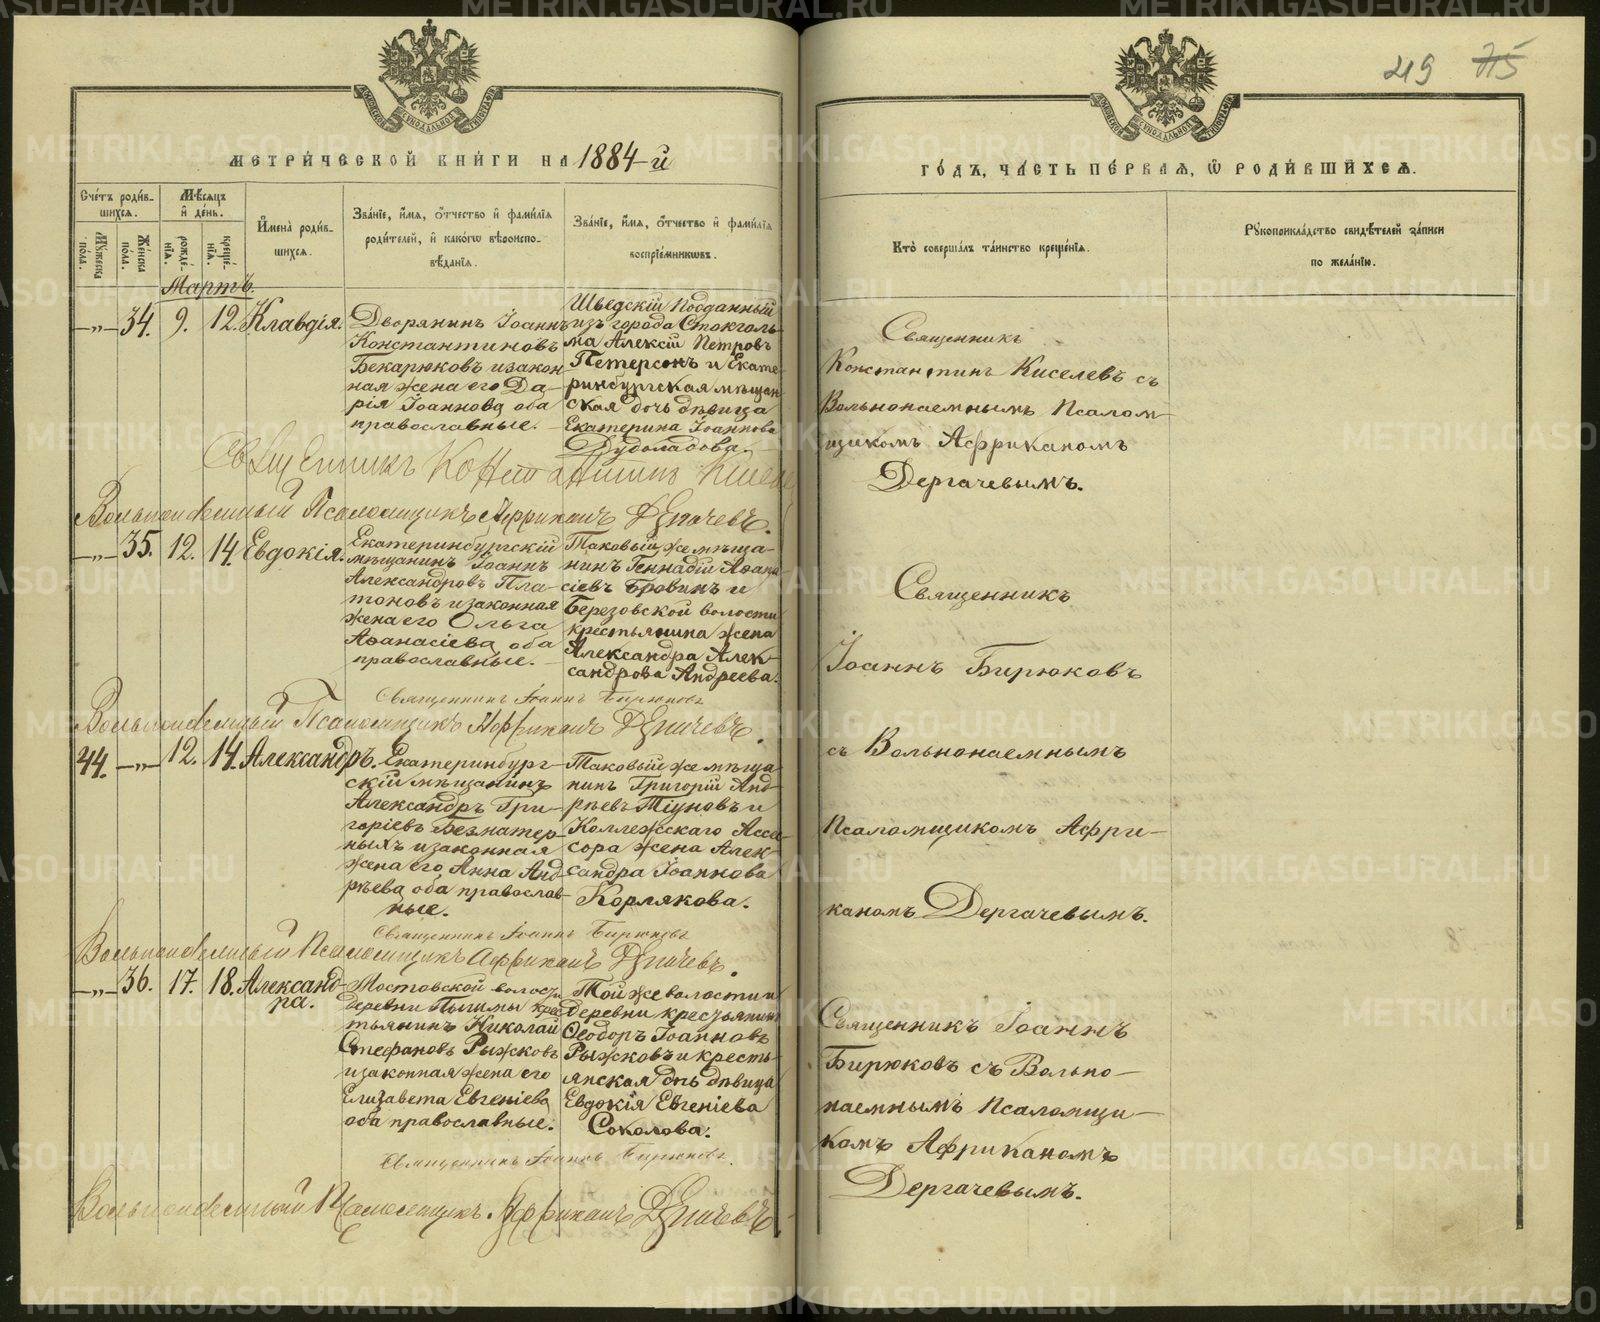 219 75
МЕТРИЧЕСКОЙ КНИГИ НА 1884-й
ГОДЪ, ЧАСТЬ ПЕРВАЯ, Ѡ РОДИВШИХСЯ.
Счетъ родив-
шихся.
Мужеска пола.
Женска пола.
Мѣсяцъ
и день.
рождё-
нія.
креще-
нія.
Имена родив-
шихся.
Званіе, имя, отчество и фамилія
родителей, и какогѡ вѣроиспо-
вѣданія.
Званіе, имя, отчество и фамилія
воспріемникѡвъ.
Кто совершалъ таинство крещенія.
Рукоприкладство свидѣтелей записи
по желанію.
Мартъ.
—„— 34. 9. 12. Клавдія.
Дворянинъ Іоаннъ
Константиновъ
Бекарюковъ и закон
ная жена его Да-
рія Іоаннова оба
православные.
Шведскій Подданный
изъ города Стокголь-
ма Алексій Петровъ
Петерсонъ и Екате-
ринбургская мѣщан
ская дочь дѣвица
Екатерина Іоаннова
Дудоладова.
Священникъ
Константинъ Киселевъ съ
Вольнонаемнымъ Псалом-
щикомъ Африканомъ
Дергачевымъ.
Священникъ Константинъ Киселе
Вольнонаемный Псаломщикъ Африканъ Дергачевъ.
—„— 35. 12. 14. Евдокія.
Екатеринбургскій
мѣщанинъ Іоаннъ
Александровъ Пла-
тоновъ и законная
жена его Ольга
Аѳанасіева оба
православные.
Таковый же мѣща-
нинъ Геннадій Аѳана
сіевъ Бровинъ и
Березовской волости
крестьянина жена
Александра Алек-
сандрова Андреева.
Священникъ
Іоаннъ Бирюковъ
съ Вольнонаемнымъ
Псаломщикомъ Афри-
каномъ Дергачевымъ.
Священникъ Іоаннъ Бирюковъ
Вольнонаемный Псаломщикъ Африканъ Дергачевъ.
44. —„— 12. 14. Александръ.
Екатеринбург-
скій мѣщанинъ
Александръ Гри-
горіевъ Безматер-
ныхъ и законная
жена его Анна Анд-
рѣева оба православ-
ные.
Таковый же мѣща-
нинъ Григорій Анд-
рѣевъ Тіуновъ и
Коллежскаго Ассе-
сора жена Алек-
сандра Іоаннова
Корлякова.
Священникъ Іоаннъ Бирюковъ
Вольнонаемный Псаломщикъ Африканъ Дергачевъ.
—„— 36. 17. 18. Александ-
ра.
Мостовской волости
деревни Пышмы крес
тьянинъ Николай
Стефановъ Рыжковъ
и законная жена его
Елизавета Евгеніева
оба православные.
Той же волости и
деревни крестьянинъ
Ѳеодоръ Іоанновъ
Рыжковъ и кресть-
янская дочь дѣвица
Евдокія Евгеніева
Соколова.
Священникъ Іоаннъ
Бирюковъ съ Вольно-
наемнымъ Псаломщи-
комъ Африканомъ
Дергачевымъ.
Священникъ Іоаннъ Бирюковъ
Вольнонаемный Псаломщикъ Африканъ Дергачевъ
METRIKI.GASO-URAL.RU